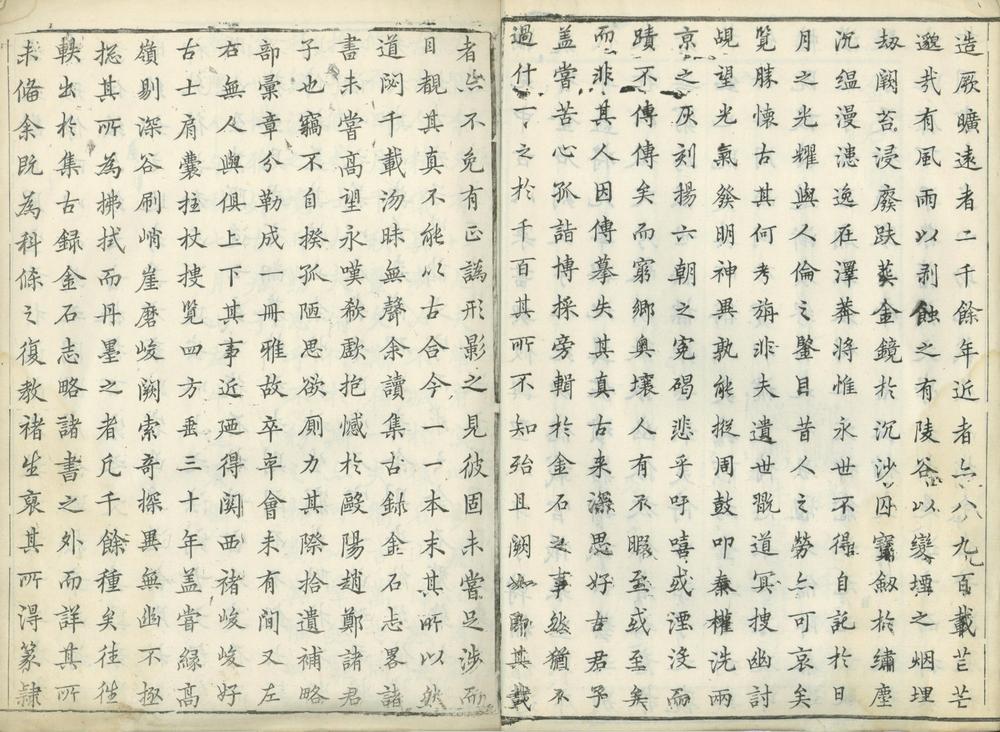 造厥曠遠者二千餘年近者六八九百載芒芒
邈哉有風雨以剥蝕之有陵谷以變堙之烟埋
劫闕苔浸廢跌葬金鏡於沉沙囚寶劔於繡塵
沉緼漫漶逸在澤莽將惟永世不得自託於日
月之光耀與人倫之鑒目昔人之勞亦可哀矣
覧勝懐古其何考旃非夫遺世翫道冥捜幽討
覘望光氣發明神異孰能摐周鼓叩秦權洗兩
京之灰刻揚六朝之寃碣悲乎吁嘻或湮沒而
蹟不傳傳矣而窮鄉奥壤人有不暇至或至矣
而非其人因傳摹失其真古来深思好古君子
盖嘗苦心孤詣博採旁輯於金石之事然猶不
過什一之於千百其所不知殆且闕如聊其載
者亦不免有正譌形影之見彼固未嘗足渉而
目觀其真不能以古合今一一本末其所以然
道闵千載沕昧無聲余讀集古録金石志畧諸
書未嘗高望永嘆欷歔抱憾於毆陽趙鄭諸君
子也竊不自揆孤陋思欲厠力其際拾遺補略
部彙章分勒成一冊雅故卒卒會未有間又左
右無人與俱上下其事近廼得関西褚峻峻好
古士肩囊拄杖捜覧四方垂三十年盖嘗緣高
嶺剔深谷刷峭崖磨峻闕索奇探異無幽不極
揔其所為拂拭而丹墨之者凡千餘種矣徃徃
軼出於集古録金石志略諸書之外而詳其所
未偹余既為科條之復教褚生裒其所得篆隸